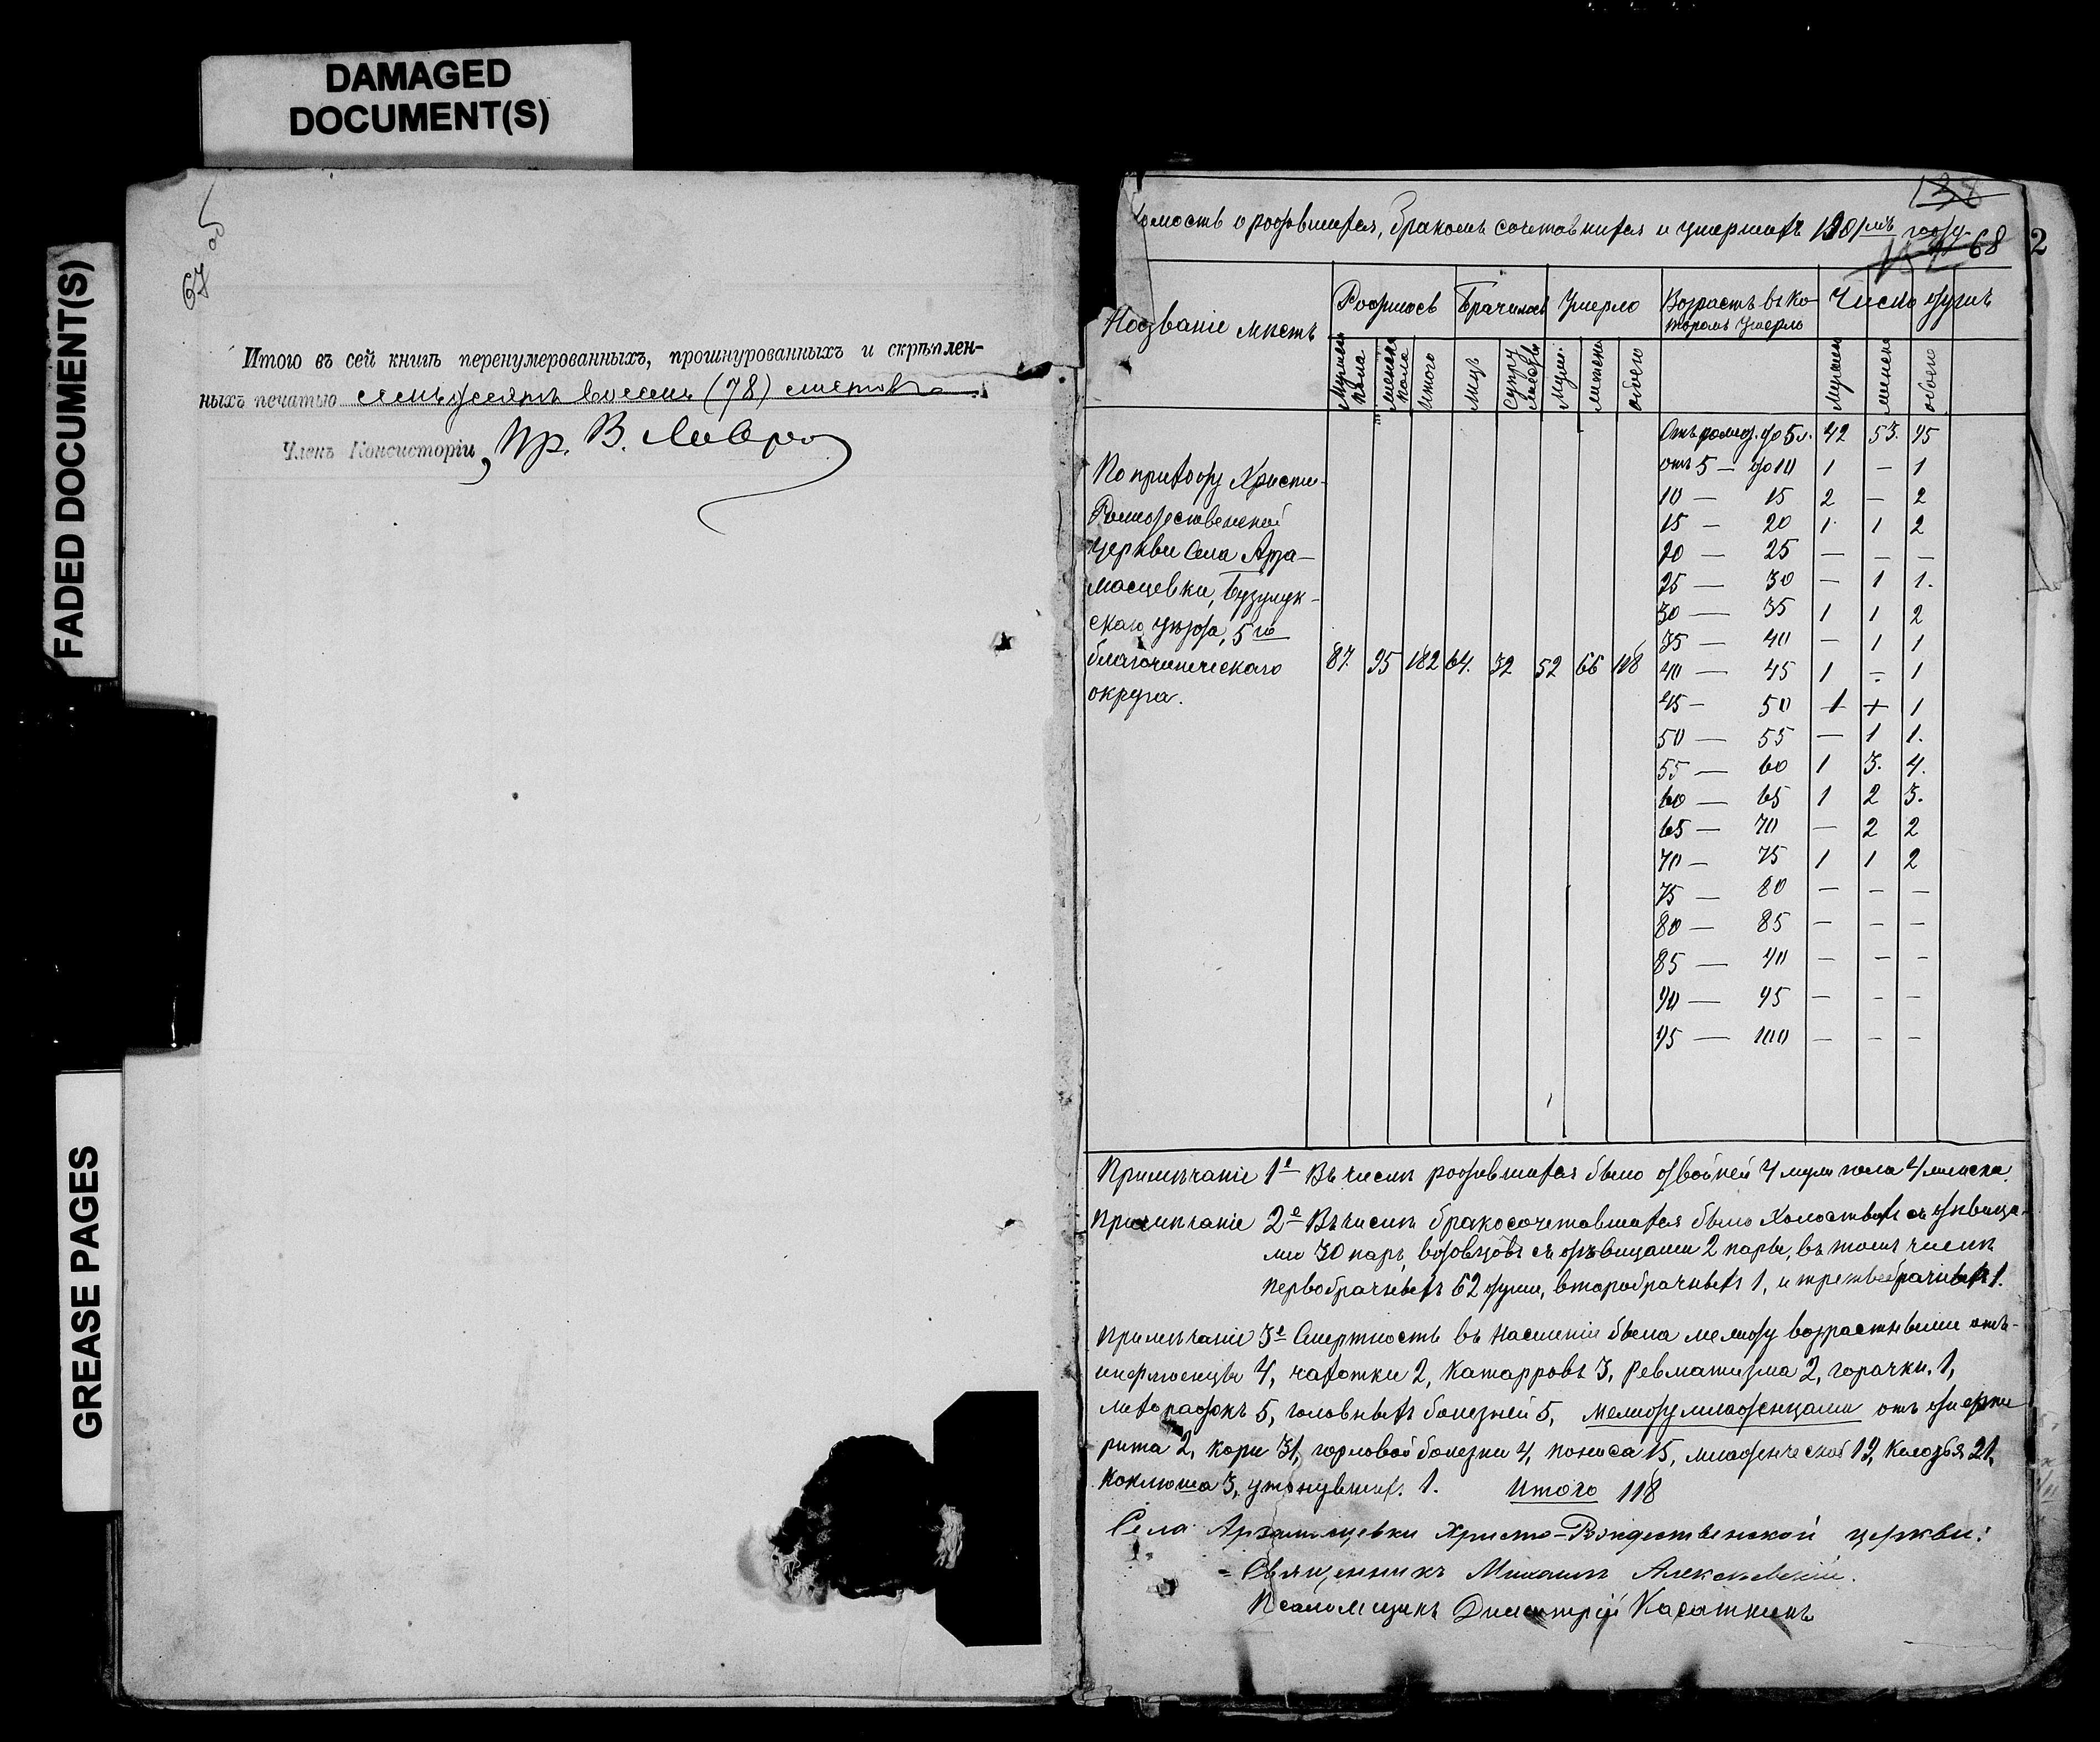 DAMAGED
DOCUMENT(S)
FADED DOCUMENT(S)
GREASE PAGES
67 об
Итого въ сей книгѣ перенумерованныхъ, прошнурованныхъ и скрѣплен-
ныхъ печатью семьдесятъ восемь (78) листовъ
Членъ Консисторіи, Пр. В. Лавро
138
омость о родившихся, бракомъ сочетавшихся и умершихъ 1901мъ году.
68
2
Названіе мѣстъ
Родилось
Брачилось
Умерло
Возрастъ въ ко-
торомъ умерло
Число душъ
пола
пола
Итого
Муж
обоего
обоего
Отъ рожд. до 5 л. 42 53. 95
отъ 5 — до 10 1 — 1
10 — 15 2 — 2
15 — 20 1 1 2
20 — 25 — — —
25 — 30 — 1 1.
30 — 35 1 1 2
35 — 40 — 1 1
40 — 45 1 - 1
45 — 50 1 + 1
50 — 55 — 1 1.
55 — 60 1 3. 4.
60 — 65 1 2 3.
65 — 70 — 2 2
70 — 75 1 1 2
75 — 80 — — —
80 — 85 — — —
85 — 90 — — —
90 — 95 — — —
95 — 100 — — —
По приходу Христо-
Рождественской
церкви села Арза-
масцевки, Бузулук-
скаго уѣзда, 5го
благочинническаго
округа.
87. 95 182 64. 32 52 66 118
Примѣчаніе 1е Въ числѣ родившихся было двойней 4 муж пола 4 женска.
Примѣчаніе 2е Въ числѣ бракосочетавшихся было холостыхъ съ дѣвица-
ми 30 паръ, вдовцовъ съ дѣвицами 2 пары, въ томъ числѣ
первобрачныхъ 62 души, второбрачныхъ 1, и третьебрачныхъ 1.
Примѣчаніе 3е Смертность въ населеніи была между возрастными отъ
инфлюенцы 4, чахотки 2, катарровъ 3, ревматизма 2, горячки. 1,
лихорадокъ 5, головныхъ болезней 5, между младенцами отъ
рита 2, кори 31, горловой болезни 4, поноса 15, младенческой 19, 21,
коклюша 3, утонувших. 1. Итого 118
Села Арзамасцевки Христо-Рождественской церкви:
Священникъ Михаилъ Алексѣевскій.
Псаломщикъ Димитрій Касаткинъ